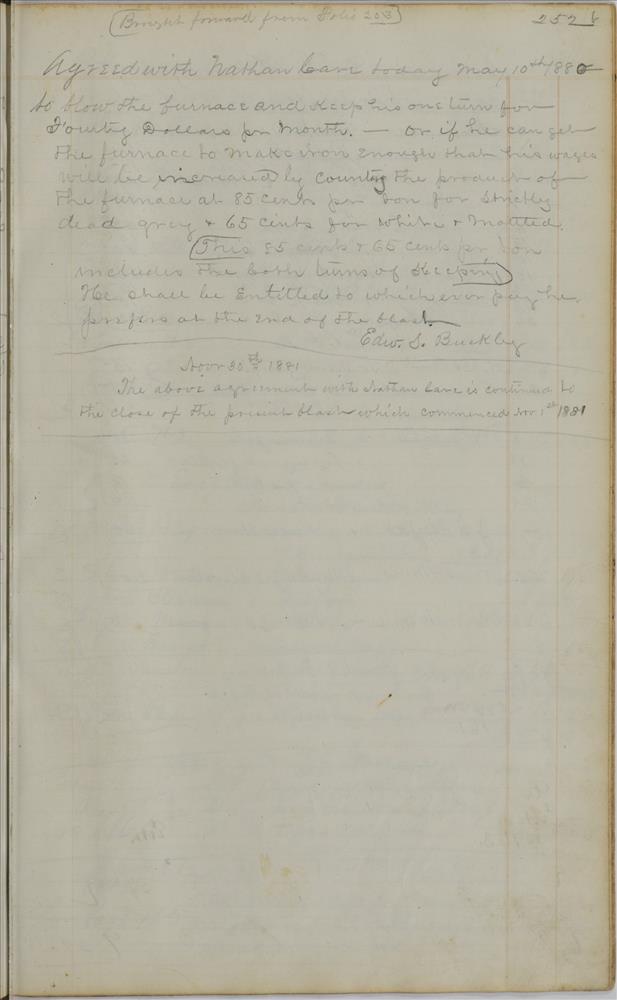 (Brought forward from Folio 203)
252 b
Agreed with Nathan Care today May 10th 1880
to blow the furnace and Keep his one turn for
Fourty Dollars pr Month. — Or if he can get
the furnace to make iron enough that his wages
will be increased by counting the product of
the furnace at 85 cents per ton for Strictly
dead grey & 65 cents for white & Mottled.
(This 85 cents & 65 cents pr ton
includes the both turns of Keeping)
He shall be Entitled to which ever pay he
prefers at the end of the blast.
Edw. S. Buckley
Novr 30th 1881
The above agreement with Nathan Care is continued to
the close of the present blast which commenced Nov 1st 1881